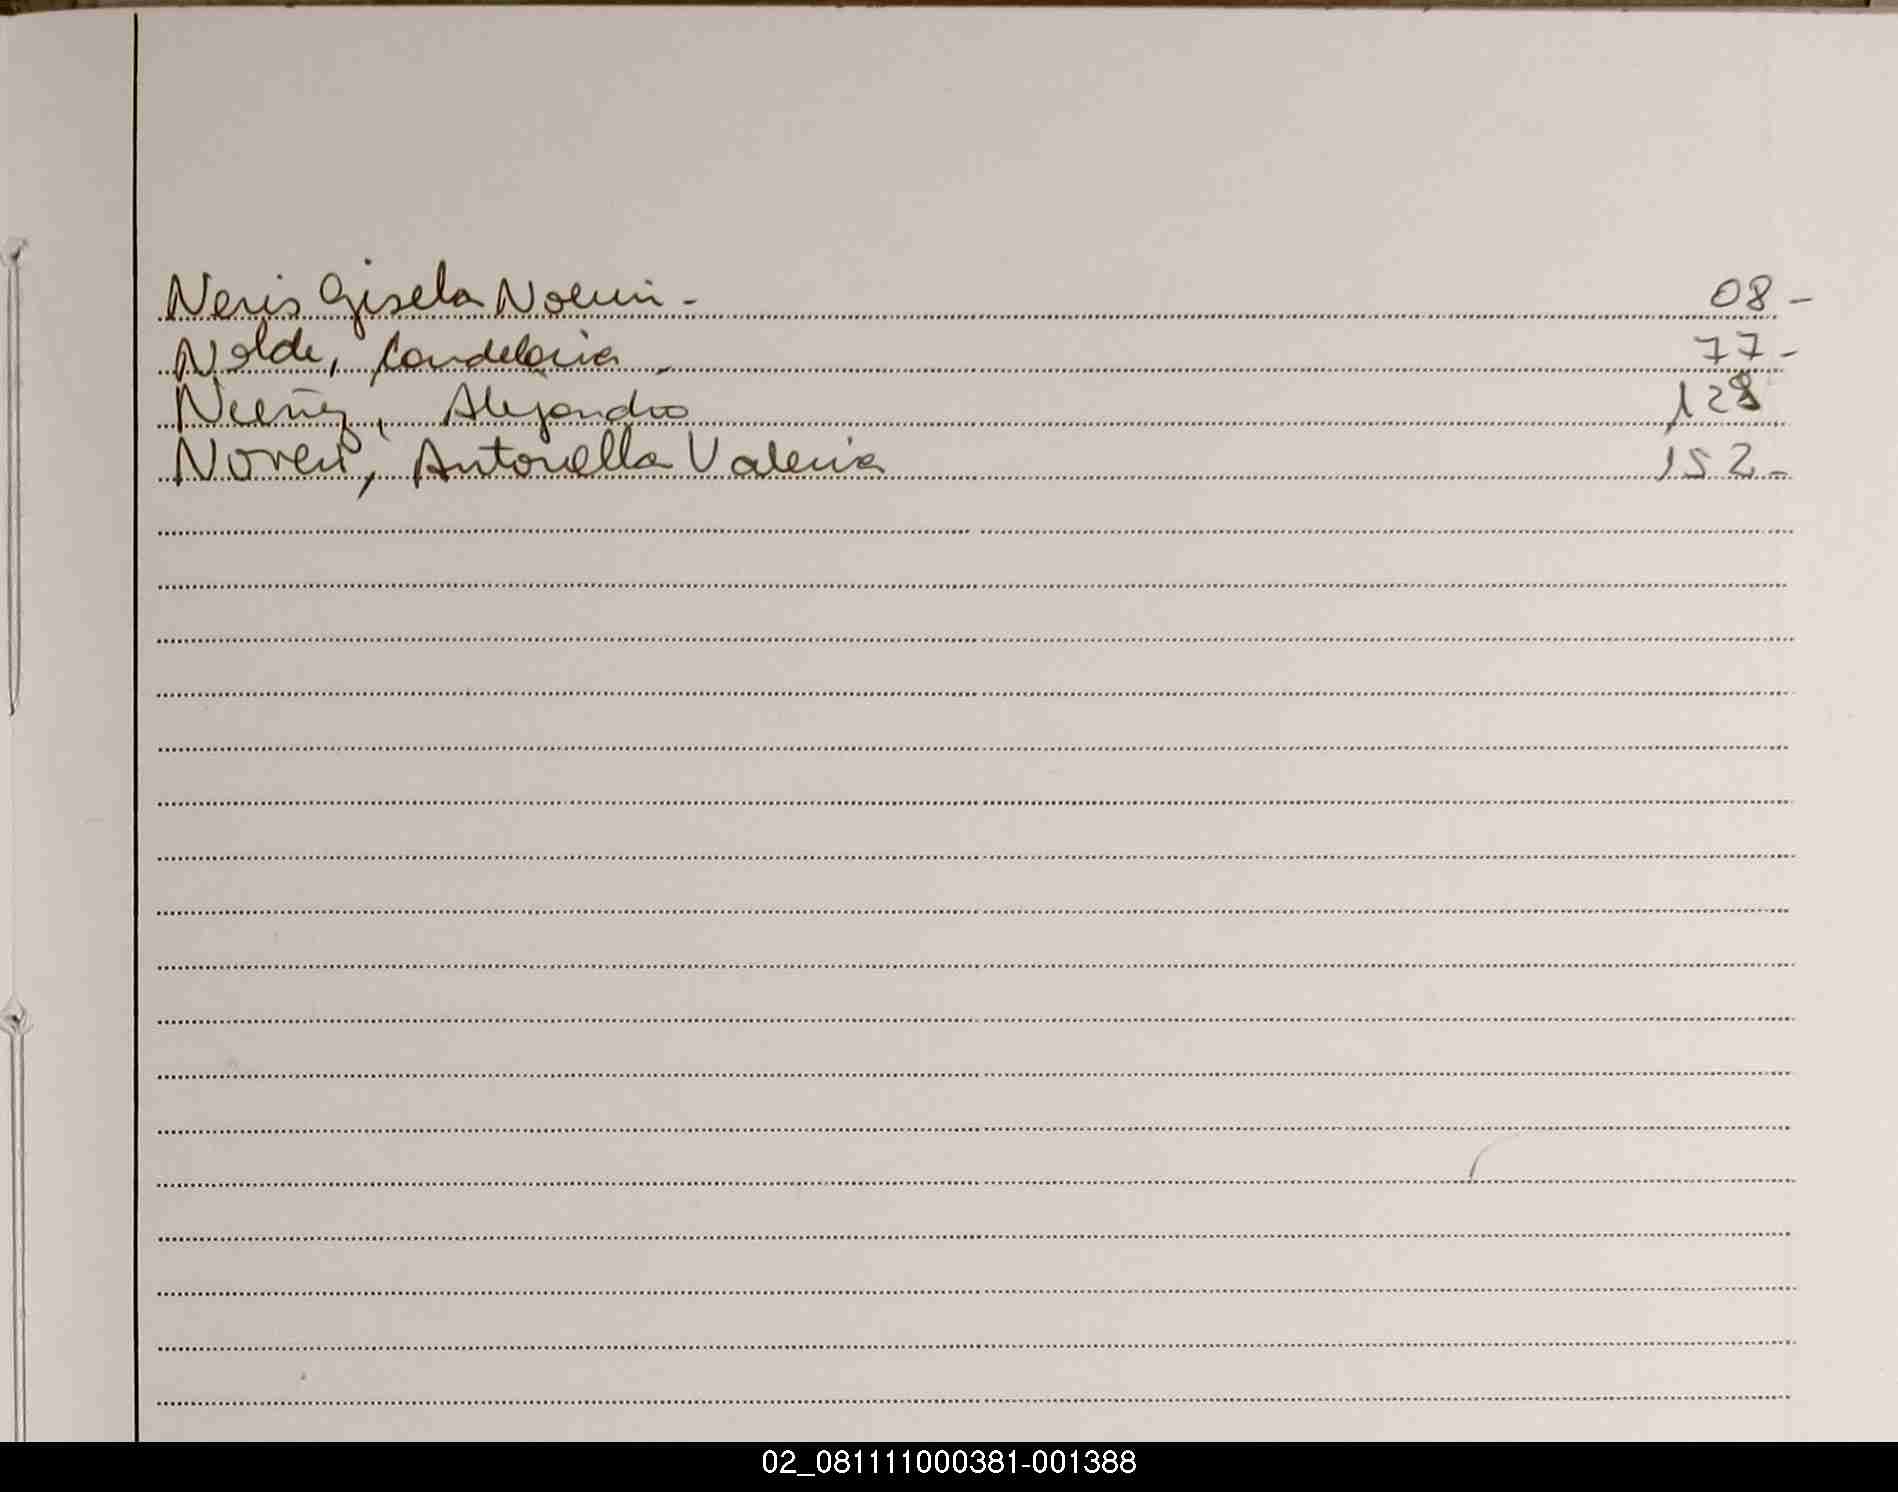 Neris Gisela Noemi - 08 -
Nolde, Candelaria - 77 -
Nuñez, Alejandro 128
Noveri, Antonella Valeria 152 -
02_081111000381-001388